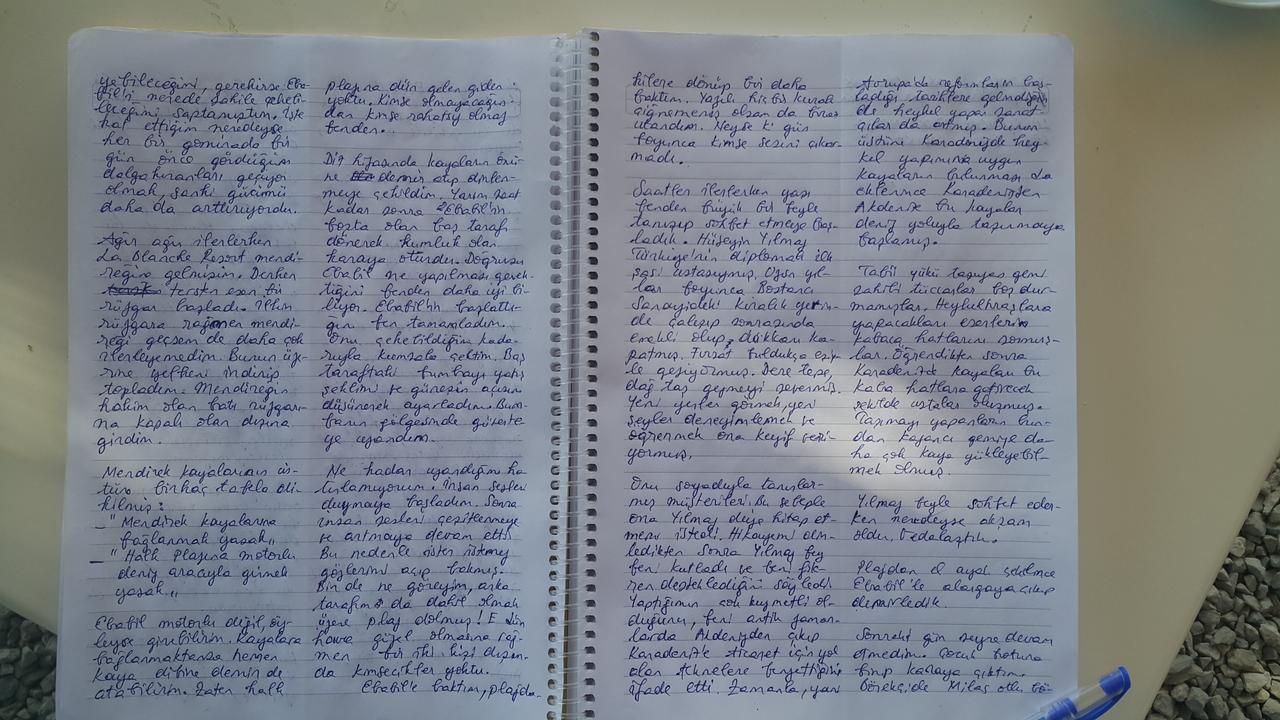 yebileceğimi, gerekirse Eba-
bili nerede sahile çeki-
leceğimi saptamıştım. İşte
hal ettiğim neredeyse
her bir gominada bir
gün önce gördüğüm
dalgakıranları geçiyor
olmak, sanki gücümü
daha da arttırıyordu.
Ağır ağır ilerlerken
La Blanche Resort mendi-
reğine gelmişim. Derken
tersten esen bir
rüzgar başladı. Ilgın
rüzgara rağmen mendi-
reği geçsem de daha çok
ilerleyemedim. Bunun üz-
rine yelkeni indirip
topladım. Mendireğin
hakim olan batı rüzgarı-
na kapalı olan dışına
girdim.
Mendirek kayalarının üs-
tüne birkaç tabela di-
kilmiş:
_ " Mendirek kayalarına
bağlanmak yasak "
_ " Halk Plajına motorlu
deniz aracıyla girmek
yasak "
Ebabil motorlu değil, öy-
leyse girebilirim. Kayalara
bağlanmaktansa hemen
kaya dibine demir de
atabilirim. Zaten halk
plajına dün gelen giden
yoktu. Kimse olmayacağın-
dan kimse rahatsız olmaz
benden..
Diş hizasında kayaların önü-
ne demir atıp dinlen-
meye çekildim. Yarım saat
kadar sonra Ebabil'in
boşta olan baş tarafı
dönerek kumluk olan
karaya oturdu. Doğrusu
Ebabil ne yapılması gerek-
tiğini benden daha iyi bi-
liyor. Ebabil'in başlattı-
ğını ben tamamladım.
Onu çekebildiğim kada-
rıyla kumsala çektim. Baş
taraftaki bumbayı yatış
şeklimi ve güneşin açısını
düşünerek ayarladım. Bum-
banın gölgesinde güverte-
ye uzandım.
Ne kadar uyudığım ha-
tırlamıyorum. İnsan sesleri
duymaya başladım. Sonra
insan sesleri çeşitlenmeye
ve artmaya devam etti
Bu nedenle ister istemez
gözlerimi açıp bakmış.
Bir de ne göreyim, arka
tarafım da dahil olmak
üzere plaj dolmuş! E dün
hava güzel olmasına rağ-
men bir iki kişi dışın-
da kimsecikler yoktu.
Ebabil'e baktım, plajda-
kilere dönüp bir daha
baktım. Yazılı hiçbir kuralı
çiğnememiş olsam da biraz
utandım. Neyse ki gün
boyunca kimse sesini çıkar-
madı.
Saatler ilerlerken yaşı
benden büyük bir beyle
tanışıp sohbet etmeye baş-
ladık. Hüseyin Yılmaz
Türkiye'nin diplomalı ilk
şasi ustasıymış. Uzun yıl-
lar boyunca Bostancı
Sanayideki kiralık yerin-
de çalışıp sonrasında
emekli olup dükkanı ka-
patmış. Fırsat buldukça eşiy-
le geziyormuş. Dere tepe,
dağ taş gezmeyi severmiş.
Yeni yerler görmek, yeni
şeyler deneyimlemek ve
öğrenmek ona keyif veri-
yormuş.
Onu soyadıyla tanırlar-
mış müşterileri. Bu sebeple
ona Yılmaz diye hitap et-
memi istedi. Hikayemi din-
ledikten sonra Yılmaz bey
beni kutladı ve beni
desteklediğini söyledi.
Yaptığımın çok kıymetli ol-
duğunu, beni antik zaman-
larda Akdenizden çıkıp
Karadeniz'e ticaret için yol
alan teknelere benzettiğini
ifade etti. Zamanla, yani
Avrupa'da reformların baş-
ladığı tarihlere gelindiğin-
de heykel yapan sanat-
çılar da artmış. Bunun
üstüne Karadenizde hey-
kel yapımına uygun
kayaların bulunması da
eklenince Karadenizden
Akdenize bu kayalar
deniz yoluyla taşınmaya
başlamış.
Tabii yükü taşıyan gemi
sahibi tüccarlar boş dur-
mamışlar. Heykeltraşlara
yapacakları eserlerin
kabaca hatlarını sormuş-
lar. Öğrendikten sonra
Karadenizde kayaları bu
kaba hatlara getirecek
şekilde ustalar oluşmuş.
Taşımayı yapanların bun-
dan kazancı gemiye da-
ha çok kaya yükleyebil-
mek olmuş.
Yılmaz beyle sohbet eder-
ken neredeyse akşam
oldu. Vedalaştık.
Plajdan el ayak çekilince
Ebabil'le alargaya çıkıp
demirledik.
Sonraki gün seyre devam
etmedim. Çocuk botuna
binip karaya çıktım.
Börekçide Milas otlu bö-